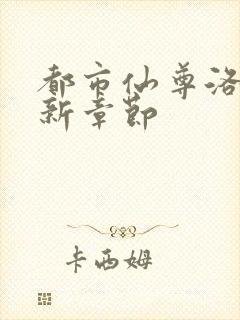 都市仙尊洛
新章节
卡西姆